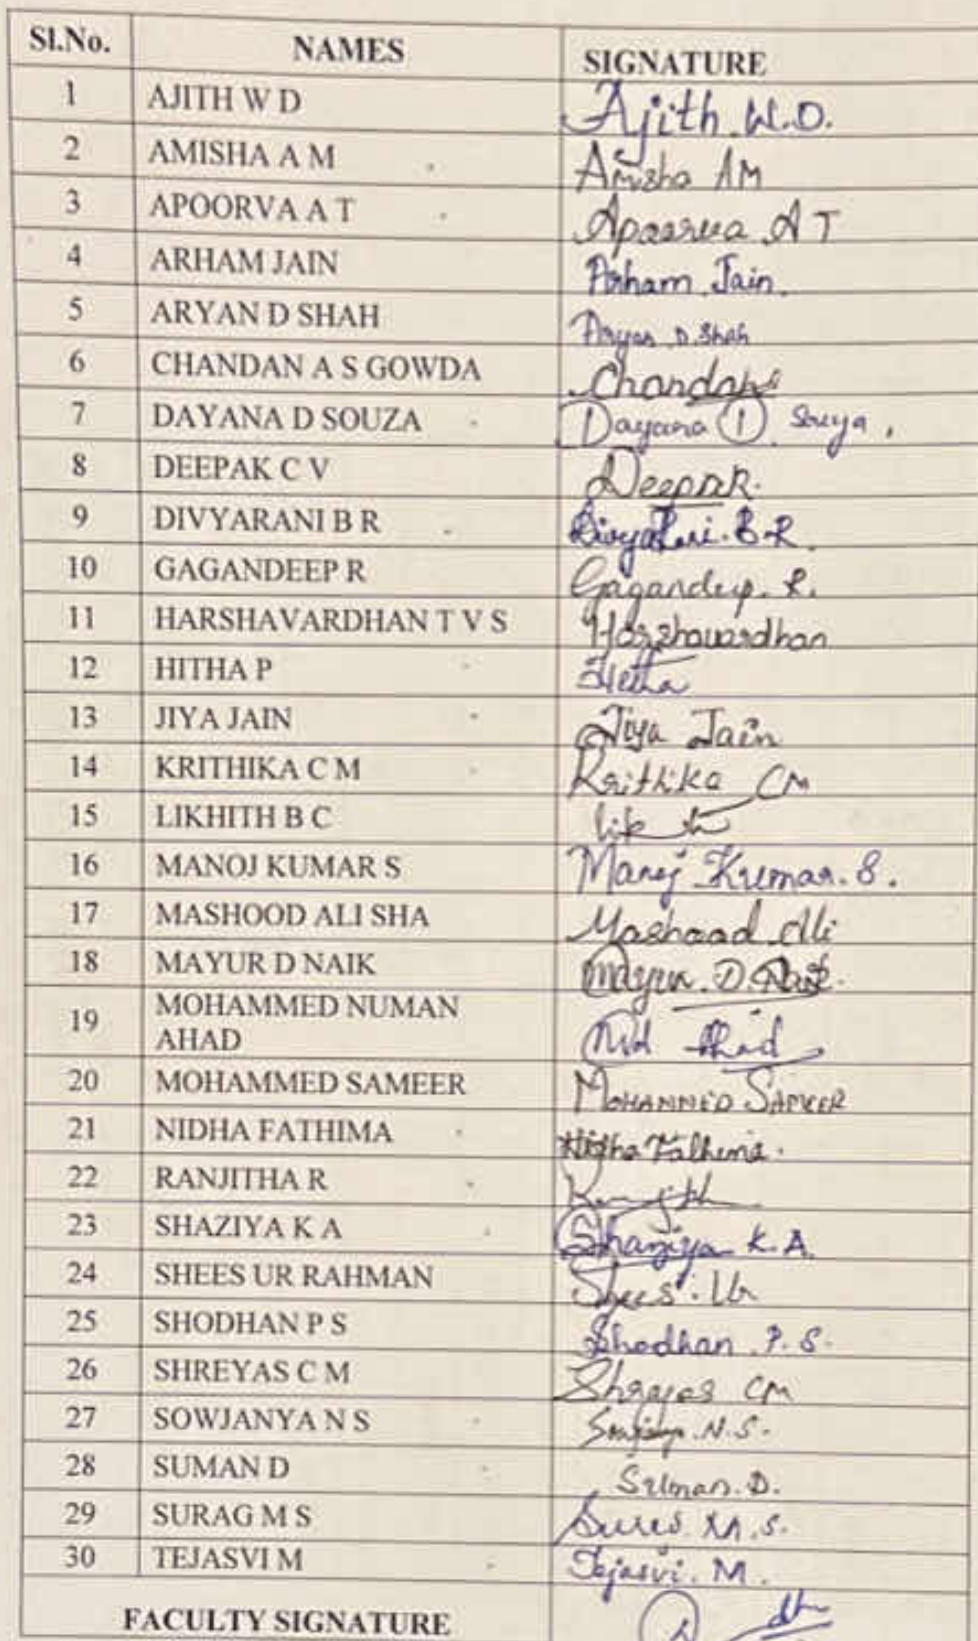 Sl.No. NAMES SIGNATURE
1 AJITH W D Ajith W.D.
2 AMISHA A M Amisha AM
3 APOORVA A T Apoorva A T
4 ARHAM JAIN Arham Jain.
5 ARYAN D SHAH Aryan D. Shah
6 CHANDAN A S GOWDA Chandan
7 DAYANA D SOUZA Dayana D. Souza,
8 DEEPAK C V Deepak.
9 DIVYARANI B R DivyaRani. B.R.
10 GAGANDEEP R Gagandeep. R.
11 HARSHAVARDHAN T V S Harshavardhan
12 HITHA P Hitha
13 JIYA JAIN Jiya Jain
14 KRITHIKA C M Krithika CM
15 LIKHITH B C
16 MANOJ KUMAR S Manoj Kumar. S.
17 MASHOOD ALI SHA Mashood Ali
18 MAYUR D NAIK Mayur. D. Naik.
19 MOHAMMED NUMAN
AHAD Md Ahad
20 MOHAMMED SAMEER MOHAMMED SAMEER
21 NIDHA FATHIMA Nidha Fathima.
22 RANJITHA R
23 SHAZIYA K A Shaziya K.A.
24 SHEES UR RAHMAN Shees. Ur
25 SHODHAN P S Shodhan P.S.
26 SHREYAS C M Shreyas CM
27 SOWJANYA N S Sowjanya N.S.
28 SUMAN D Suman. D.
29 SURAG M S M.S.
30 TEJASVI M Tejasvi. M.
FACULTY SIGNATURE